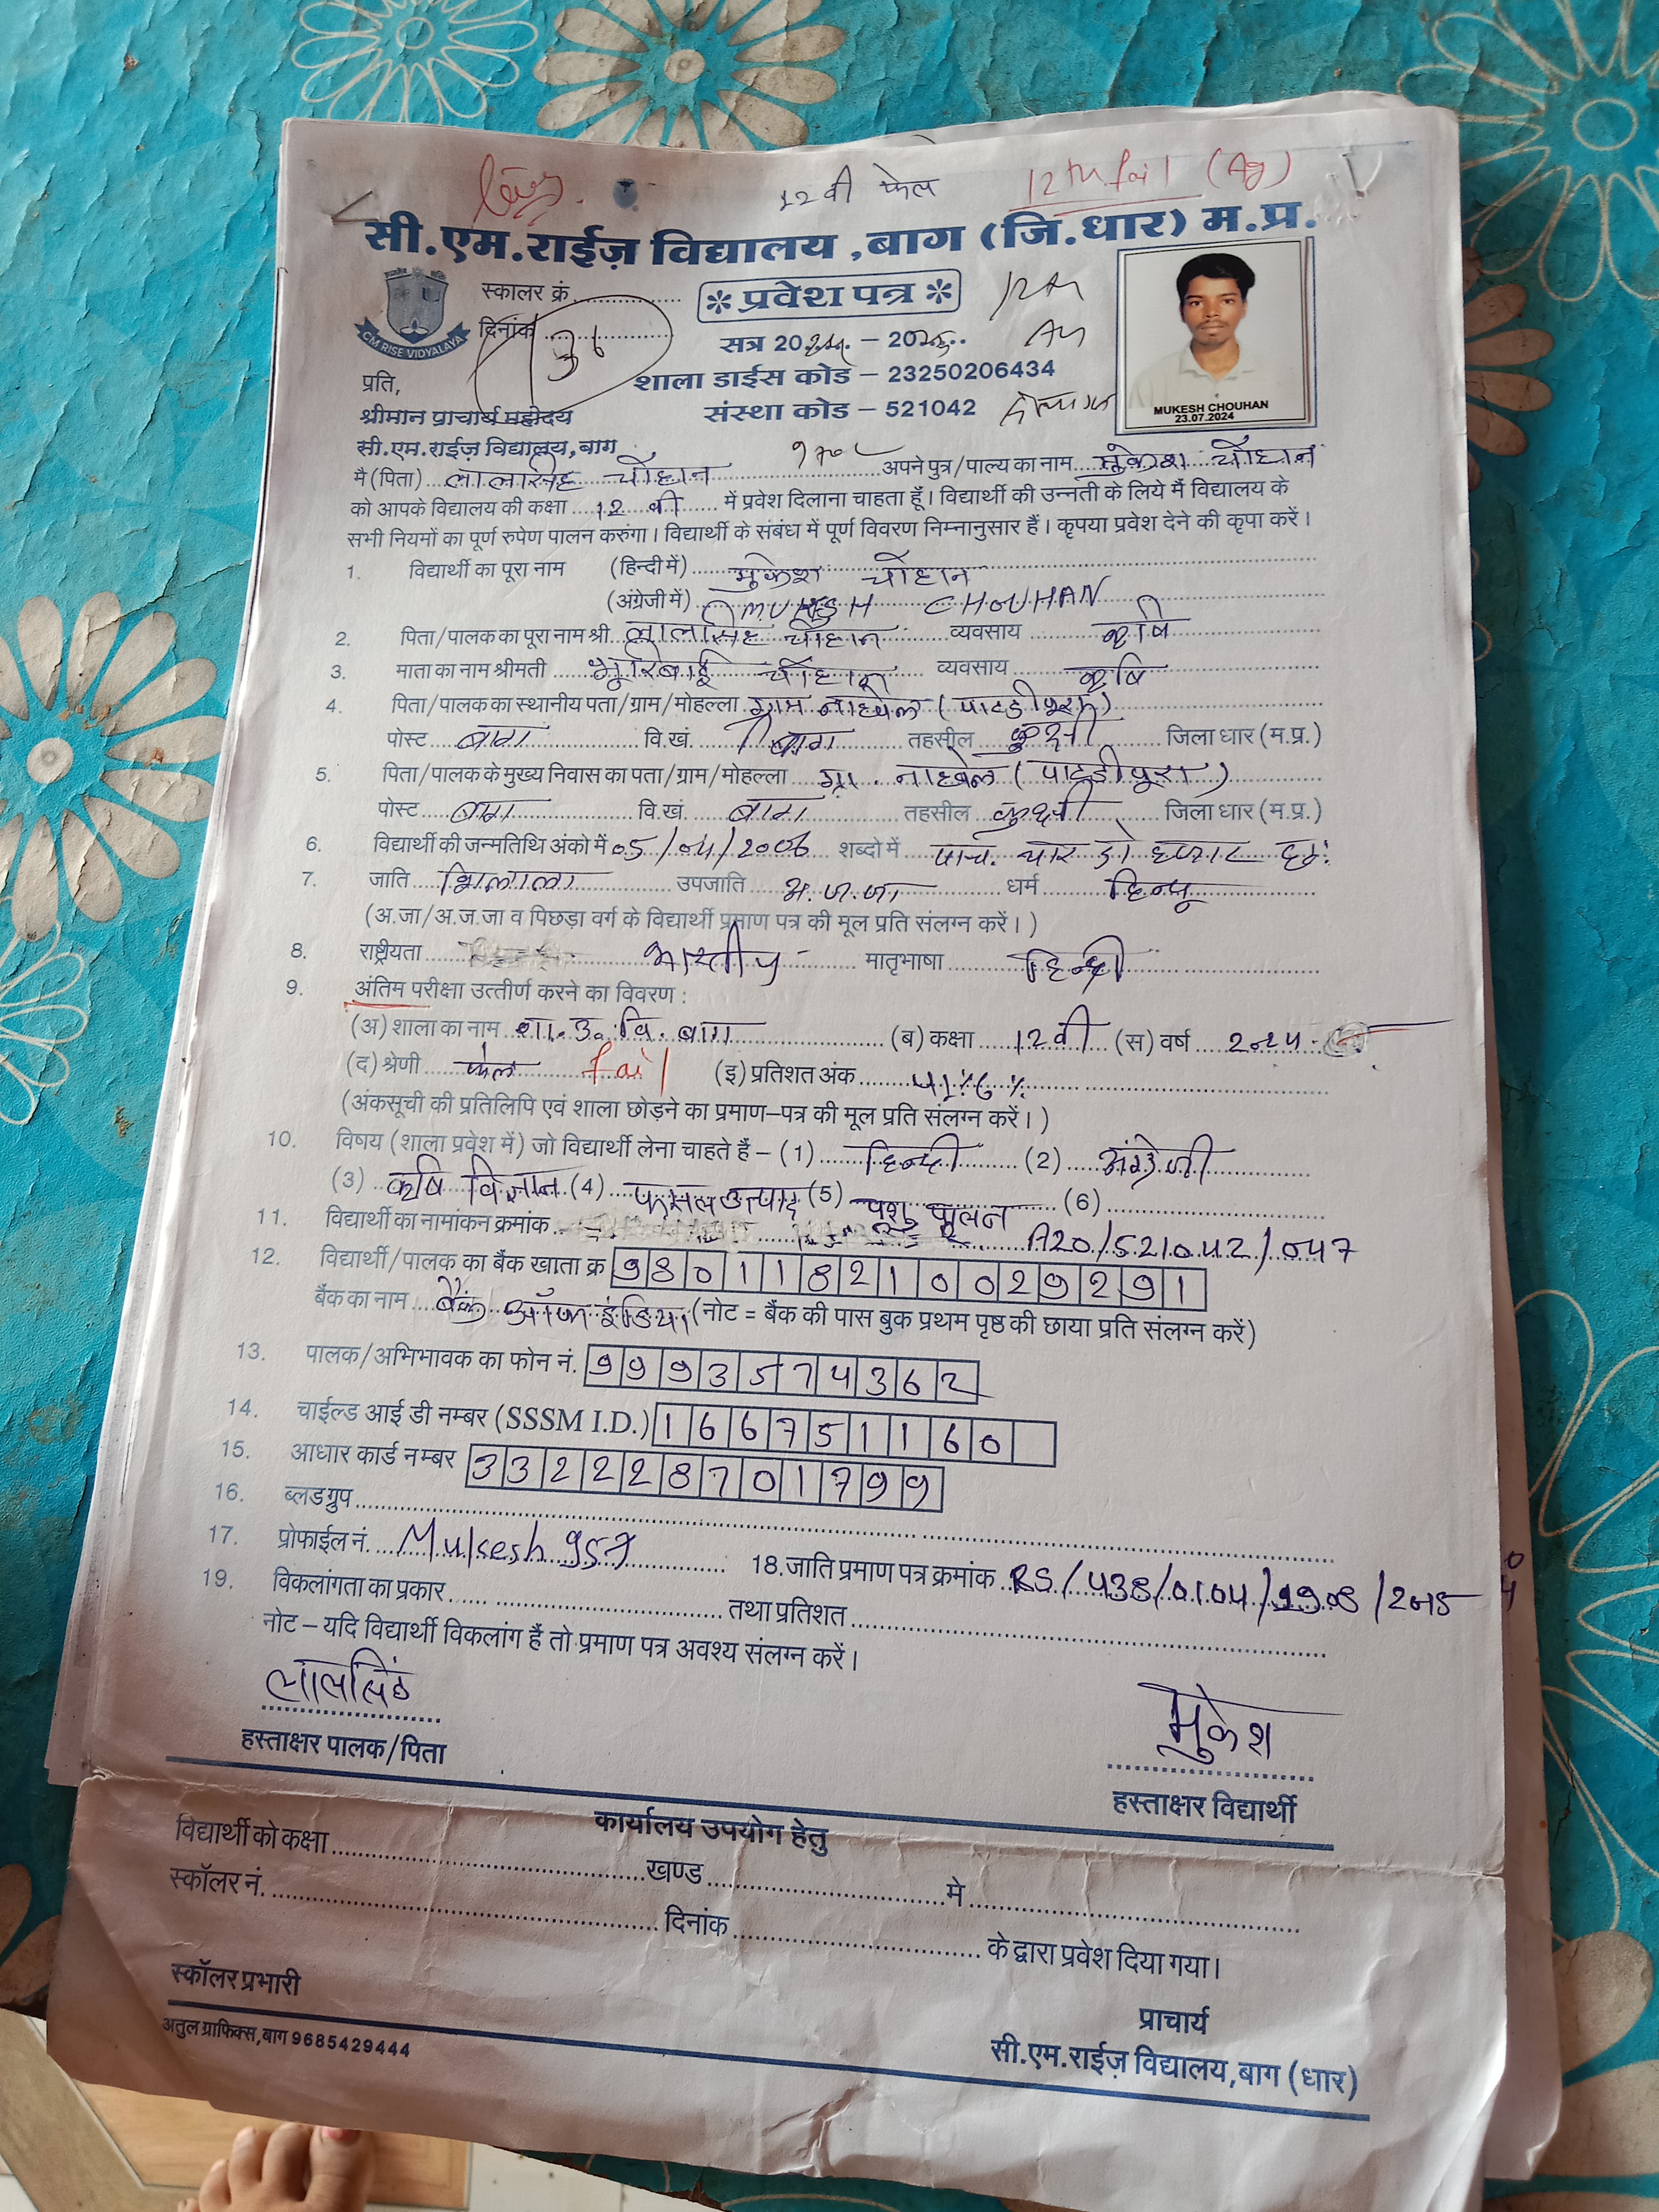 12 वी फेल 12th fail (Ag)
सी.एम.राईज़ विद्यालय ,बाग (जि.धार) म.प्र.
CM RISE VIDYALAYA
स्कालर क्रं.
* प्रवेश पत्र *
दिनांक
सत्र 20 – 20
शाला डाईस कोड – 23250206434
संस्था कोड – 521042
MUKESH CHOUHAN
23.07.2024
प्रति,
श्रीमान प्राचार्य महोदय
सी.एम.राईज़ विद्यालय,बाग
मै (पिता) लालसिंह चौहान अपने पुत्र/पाल्य का नाम मुकेश चौहान
को आपके विद्यालय की कक्षा 12 वी में प्रवेश दिलाना चाहता हूँ। विद्यार्थी की उन्नती के लिये मैं विद्यालय के
सभी नियमों का पूर्ण रुपेण पालन करुंगा। विद्यार्थी के संबंध में पूर्ण विवरण निम्नानुसार हैं। कृपया प्रवेश देने की कृपा करें।
1. विद्यार्थी का पूरा नाम (हिन्दी में) मुकेश चौहान
(अंग्रेजी में) MUKESH CHOUHAN
2. पिता/पालक का पूरा नाम श्री लालसिंह चौहान व्यवसाय कृषि
3. माता का नाम श्रीमती भुरिबाई चौहान व्यवसाय कृषि
4. पिता/पालक का स्थानीय पता/ग्राम/मोहल्ला ग्राम नाहवेल (पाटडीपूरा)
पोस्ट बाग वि.खं. बाग तहसील कुक्षी जिला धार (म.प्र.)
5. पिता/पालक के मुख्य निवास का पता/ग्राम/मोहल्ला ग्रा. नाहवेल (पाटडीपूरा)
पोस्ट बाग वि.खं. बाग तहसील कुक्षी जिला धार (म.प्र.)
6. विद्यार्थी की जन्मतिथि अंको में 05/04/2006 शब्दो में पांच. चार दो हजार छः
7. जाति भिलाला उपजाति अ.ज.जा धर्म हिन्दू
(अ.जा/अ.ज.जा व पिछड़ा वर्ग के विद्यार्थी प्रमाण पत्र की मूल प्रति संलग्न करें।)
8. राष्ट्रीयता भारतीय मातृभाषा हिन्दी
9. अंतिम परीक्षा उत्तीर्ण करने का विवरण :
(अ) शाला का नाम शा.उ.वि. बाग (ब) कक्षा 12 वी (स) वर्ष 2024
(द) श्रेणी फेल fail (इ) प्रतिशत अंक
(अंकसूची की प्रतिलिपि एवं शाला छोड़ने का प्रमाण–पत्र की मूल प्रति संलग्न करें।)
10. विषय (शाला प्रवेश में) जो विद्यार्थी लेना चाहते हैं – (1) हिन्दी (2) अंग्रेजी
(3) कृषि विज्ञान (4) फसल उत्पाद (5) पशु पालन (6)
11. विद्यार्थी का नामांकन क्रमांक A20/521042/047
12. विद्यार्थी/पालक का बैंक खाता क्र 980118210029291
बैंक का नाम बैंक ऑफ इंडिया (नोट = बैंक की पास बुक प्रथम पृष्ठ की छाया प्रति संलग्न करें)
13. पालक/अभिभावक का फोन नं. 9993574362
14. चाईल्ड आई डी नम्बर (SSSM I.D.) 166751160
15. आधार कार्ड नम्बर 332228701799
16. ब्लड ग्रुप
17. प्रोफाईल नं. Mukesh957 18. जाति प्रमाण पत्र क्रमांक RS/438/0104/9908/2015
19. विकलांगता का प्रकार तथा प्रतिशत
नोट – यदि विद्यार्थी विकलांग हैं तो प्रमाण पत्र अवश्य संलग्न करें।
लालसिंह मुकेश
हस्ताक्षर पालक/पिता हस्ताक्षर विद्यार्थी
कार्यालय उपयोग हेतु
विद्यार्थी को कक्षा खण्ड मे
स्कॉलर नं. दिनांक के द्वारा प्रवेश दिया गया।
स्कॉलर प्रभारी प्राचार्य
अतुल ग्राफिक्स,बाग 9685429444 सी.एम.राईज़ विद्यालय,बाग (धार)